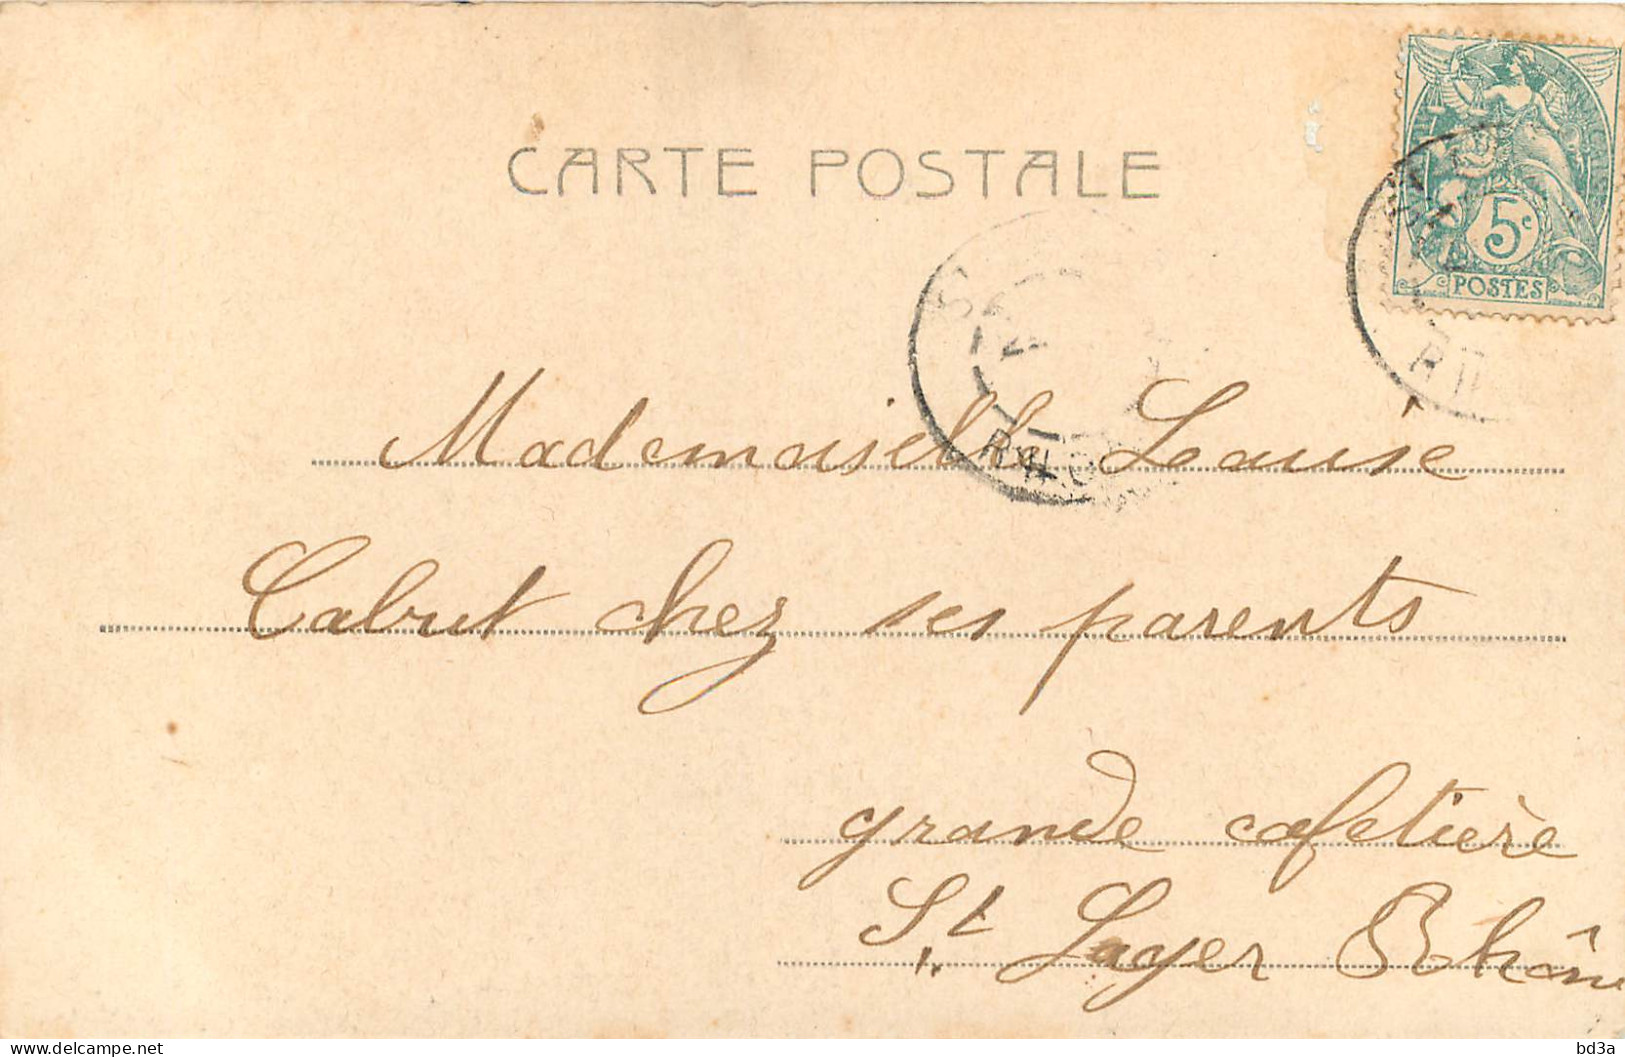 CARTE POSTALE
5c
POSTES
RHO
Mademoiselle Louise
Cabut chez ses parents
grande cafetière
St. Lager Rhône
delcampe.net
bd3a